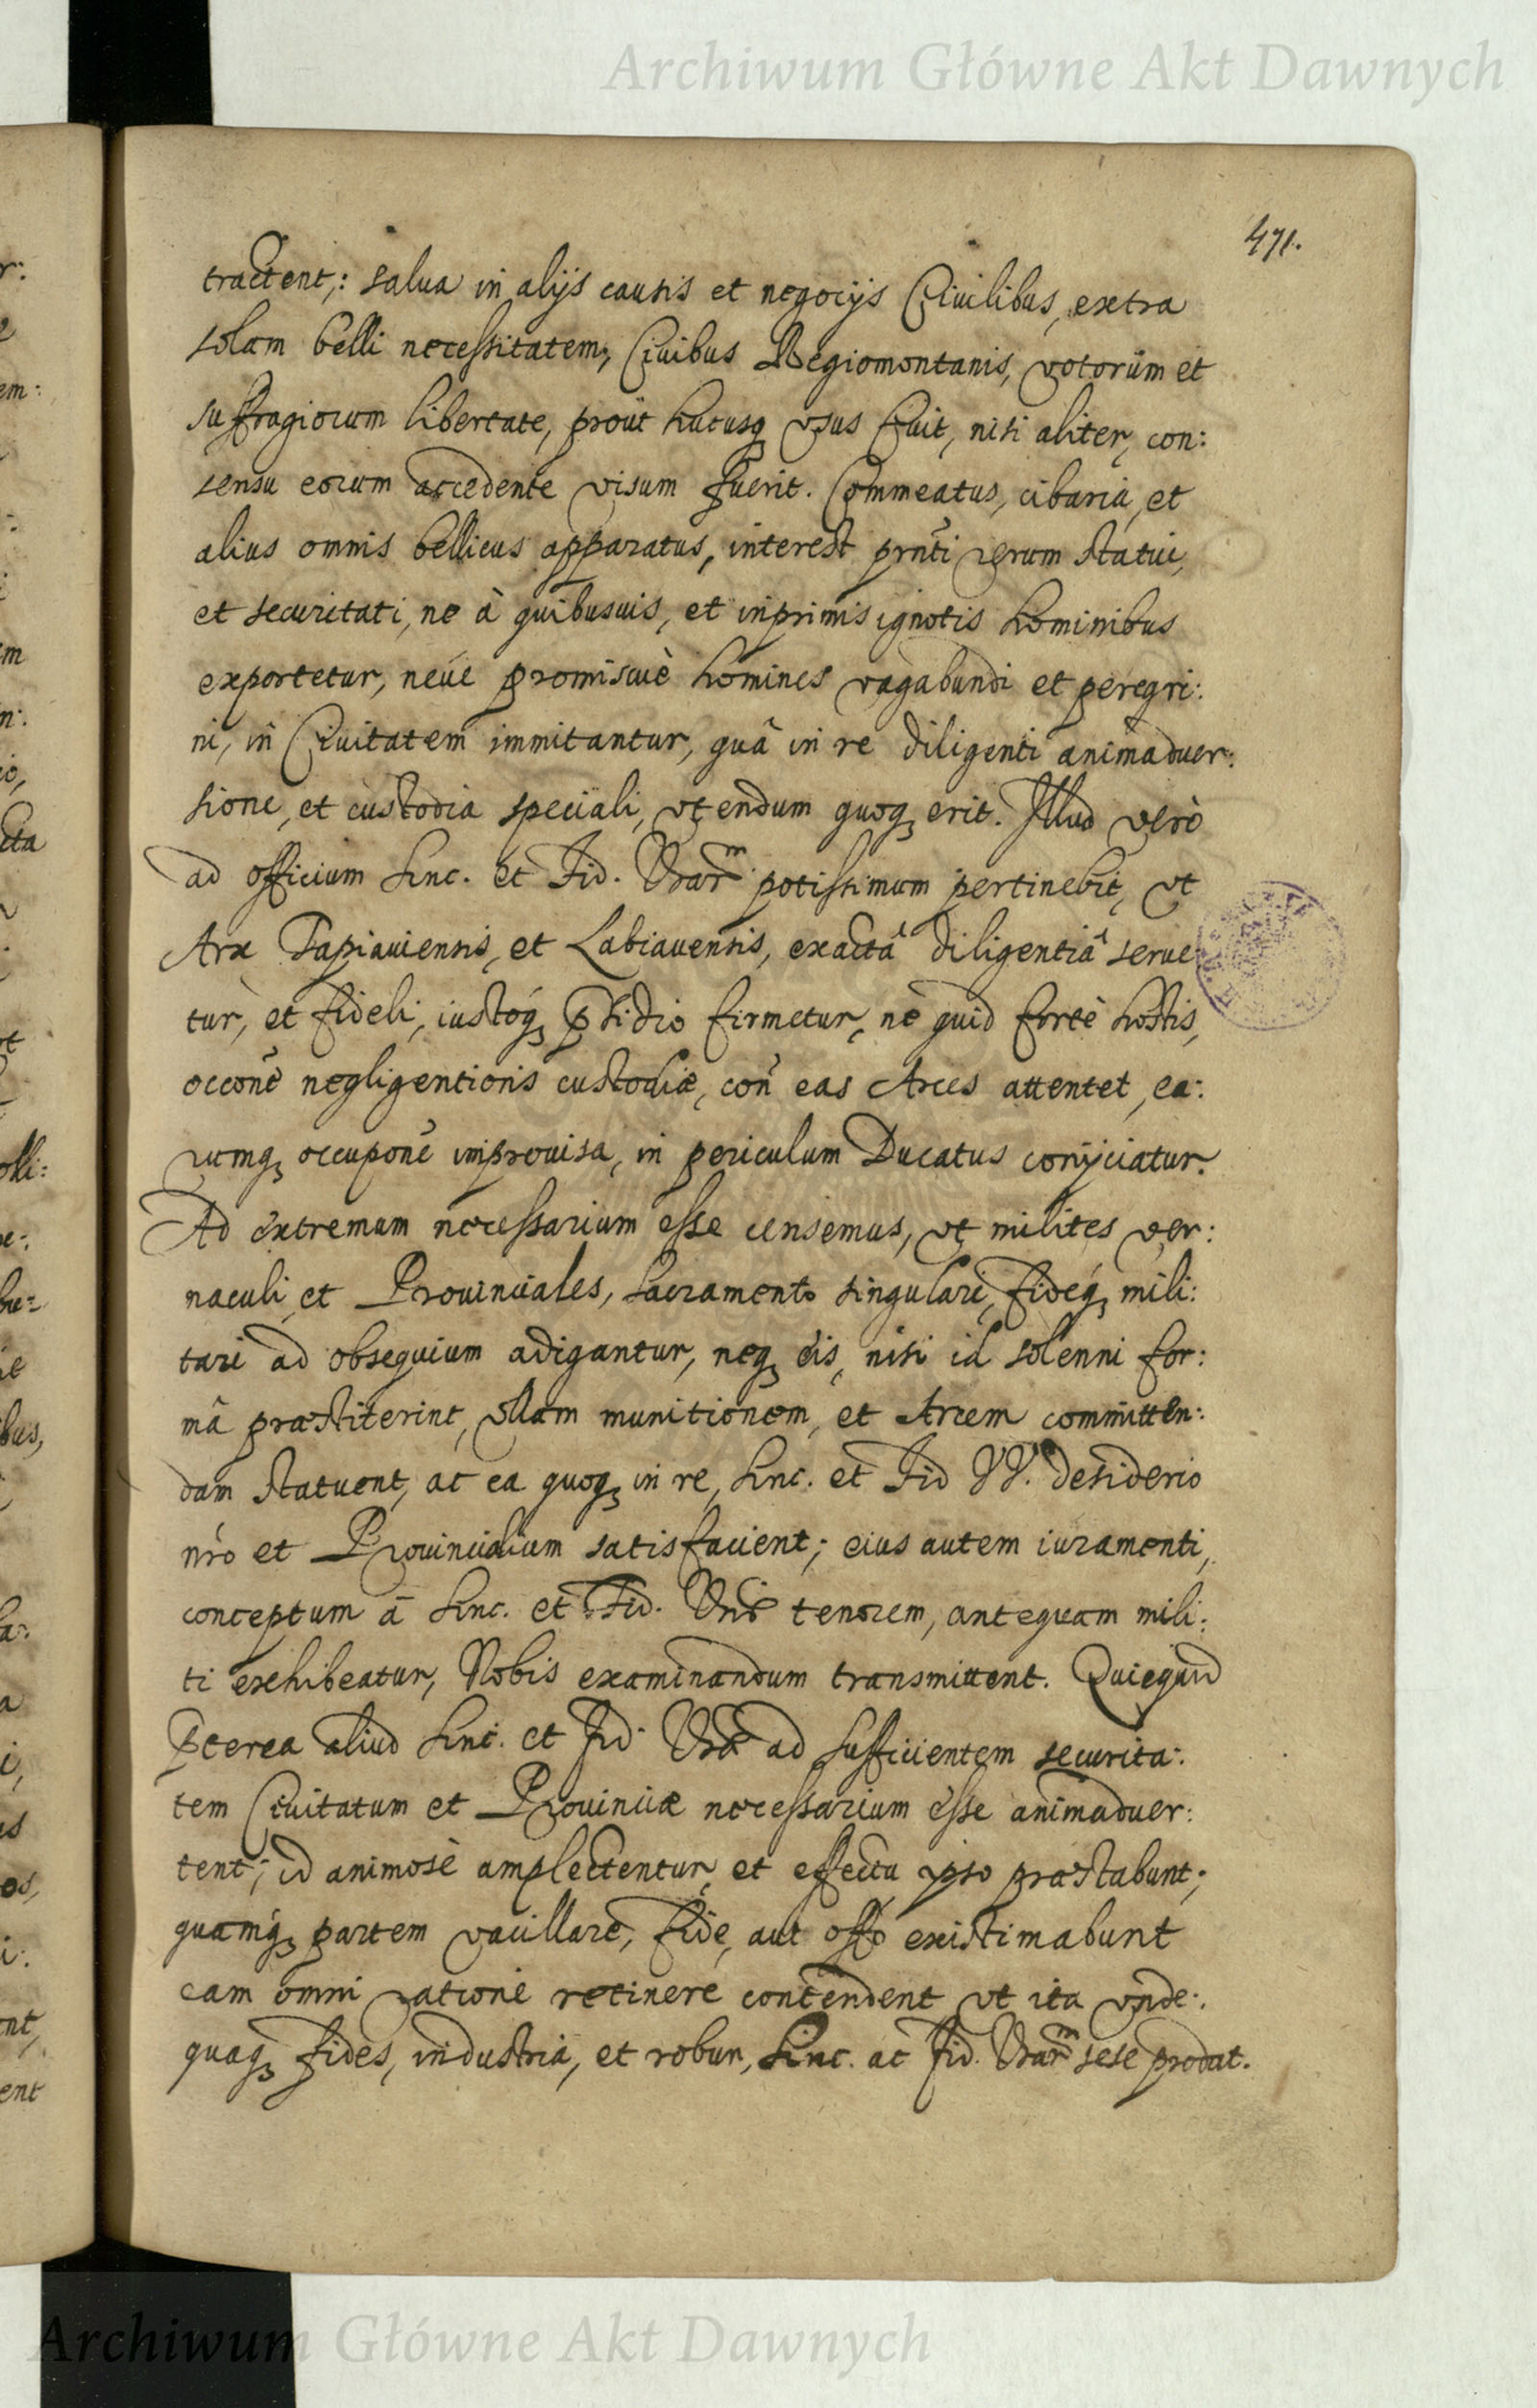 Archiwum Główne Akt Dawnych
471.
tractent,: salua in alijs causis et negocijs Ciuilibus, extra
solam belli necessitatem, Ciuibus Regiomontanis, votorum et
suffragiorum libertate, prout hucusq vsus fuit, nisi aliter, con:
sensu eorum accedente visum fuerit. Commeatus, cibaria, et
alius omnis bellicus apparatus, interest pnti rerum statui,
et securitati, ne à quibusuis, et inprimis ignotis hominibus
exportetur, neue promiscuè homines vagabundi et peregri:
ni, in Ciuitatem immitantur, quâ in re diligenti animaduer:
sione, et custodia speciali, vtendum quoq erit. Illud verò
ad officium Sinc. et Fid. Vrarm potissimum pertinebit, vt
Arx Tapiauiensis, et Labiauensis, exactâ diligentiâ serue
tur, et fideli, iustoq psidio firmetur, ne quid fortè hostis,
occone negligentioris custodiæ, con eas Arces attentet, ea:
rumq occupone improuisa, in periculum Ducatus conijciatur.
Ad extremum necessarium esse censemus, vt milites ver:
naculi et Prouinciales, sacramento singulari, fideq mili:
tari ad obsequium adigantur, neq eis, nisi id solenni for:
mâ præstiterint, vllam munitionem, et Arcem committen:
dam statuent, ac ea quoq in re, Sinc. et Fid VV. desiderio
nro et Prouincialium satisfacient; eius autem iuramenti,
conceptum à Sinc. et Fid. tenorem, antequam mili:
ti exhibeatur, Nobis examinandum transmittent. Quicquid
Pterea aliud Sinc. et Fid. Vræ ad sufficientem securita:
tem Ciuitatum et Prouinciæ necessarium esse animaduer:
tent; id animosè amplectentur, et effectu ipso præstabunt;
quamq partem vacillare, fide, aut offo existimabunt
eam omni ratione retinere contendent vt ita vnde:
quaq fides, industria, et robur, Sinc. ac Fid. Vrarm sese prodat.
Archiwum Główne Akt Dawnych